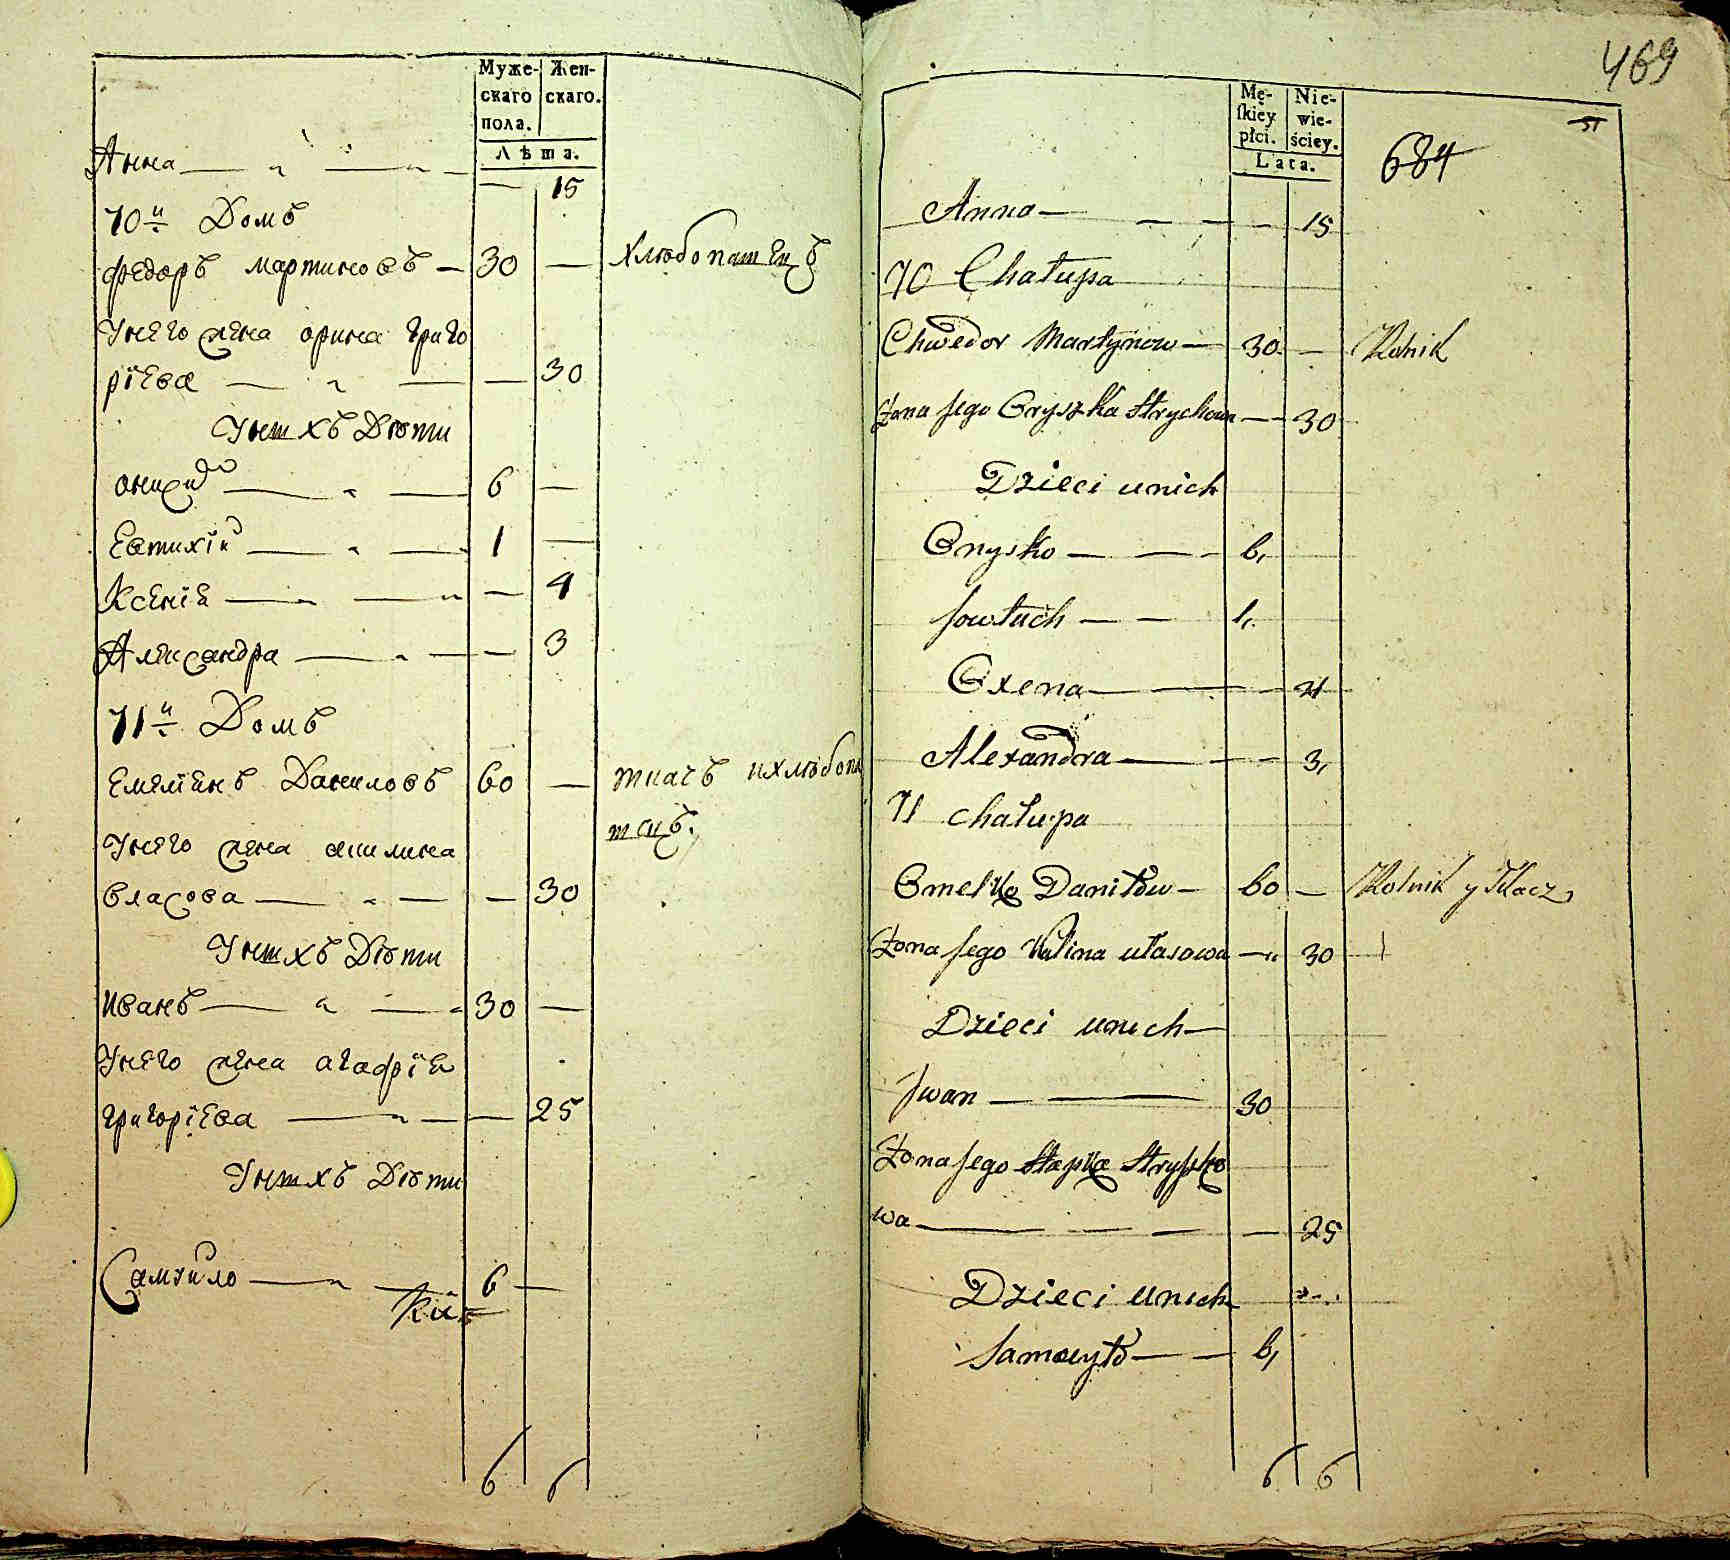 Муже-
скаго
пола.
Жен-
скаго.
Лѣта.
Анна 15
70й Домъ
Федоръ Мартиновъ 30 Хлѣбопашецъ
У него жена Орина Григо
ріева 30
У нихъ Дѣти
Онисий 6
Евтихій 1
Ксенія 4
Александра 3
71й Домъ
Емеліянъ Даниловъ 60 ткачъ и хлѣбопа
У него жена Акилина
Власова 30
У нихъ Дѣти
Иванъ 30
У него жена Агафія
Григоріева 25
У нихъ Дѣти
Самуйло 6
6 6
469
Mę-
skiey
płci.
Nie-
wie-
ściey.
Lata.
684
Anna 15
70 Chałupa
Chwedor Martynow 30 Rolnik
Żona Jego Oryszka Hrychowa 30
Dzieci unich
Onysko 6
Jowtuch 1
Oxena 4
Alexandra 3
71 chałupa
Omelko Daniłow 60 Rolnik y Tkacz
Żona Jego Kulina ułasowa 30
Dzieci unich
Jwan 30
Żona Jego Hapka Hryszko
wa 25
Dzieci unich
Samuyło 6
6 6